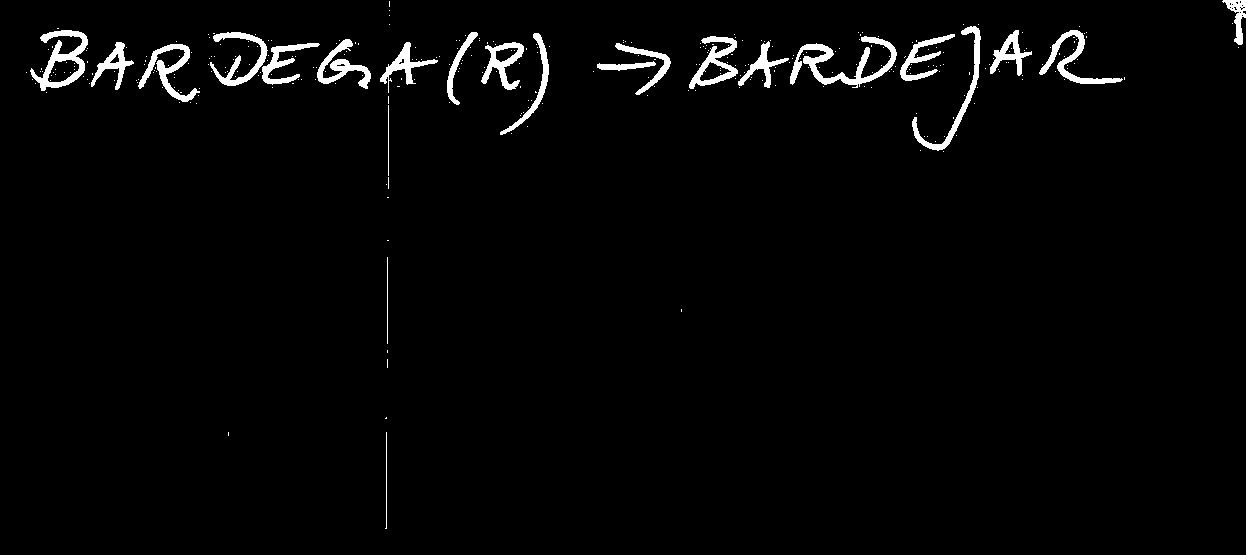 BARDEGA(R) → BARDEJAR